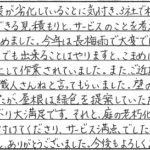 壁が劣化していることに気付き、3社で
できる見積もりと、サービスのことを考
めました。今年は長梅雨で大変で
でも出来ることはやりますと、こまめに
として作業されていました。また、ご近
職人さんねと言ってもらい
たが、屋根は緑色を提案していた
り大満足です。それと、庭の老朽化
すけてくださり、サービス満点でした
。ありがとうございました。今後もよろし